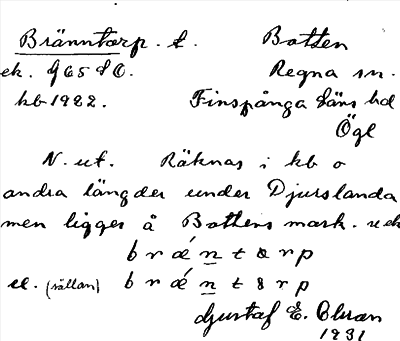 Bränntorp. t. Botten
ek. 965 SO. Regna sn.
kb 1922. Finspånga läns hd
Ögl
N. ut. Räknas i kb o
andra längder under Djurslanda
men ligger å Bottens mark. uek
brǽntɵrp
el. (sällan) brǽntɵrp
Gustaf E. Olsson
1931